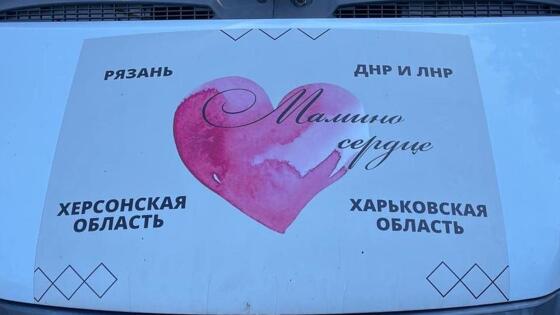 РЯЗАНЬ
ДНР И ЛНР
Мамино
сердце
ХЕРСОНСКАЯ
ОБЛАСТЬ
ХАРЬКОВСКАЯ
ОБЛАСТЬ